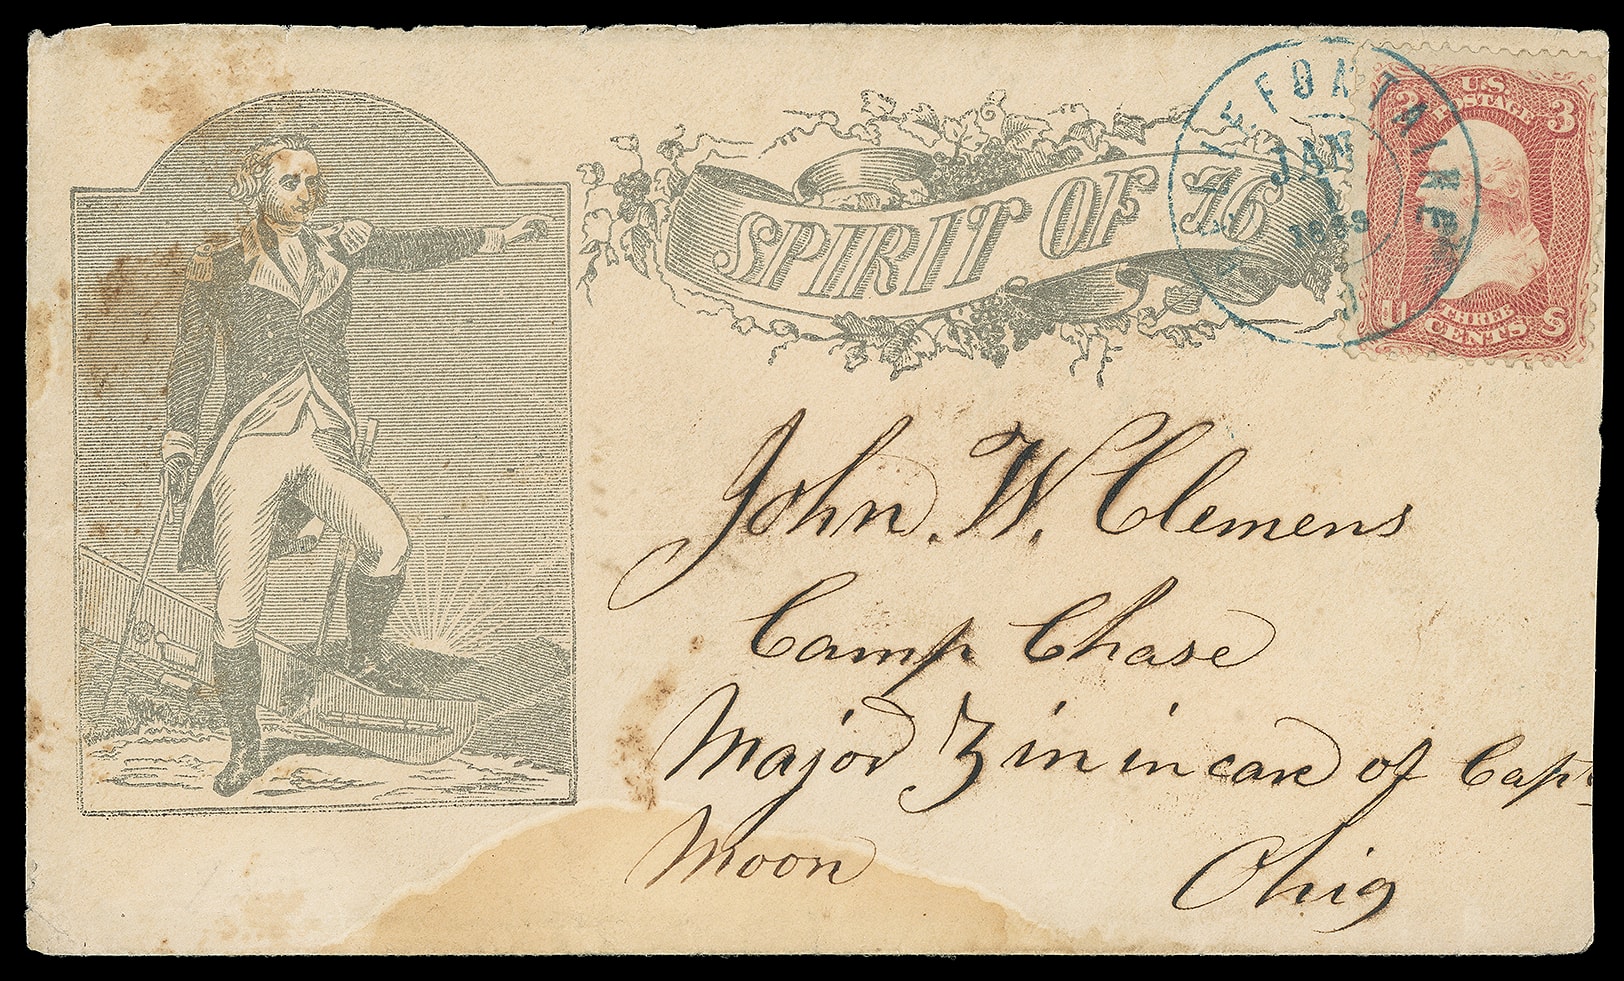 SPIRIT OF 76
BELLEFONTAINE
JAN
1
1863
U.S.
POSTAGE
3 3
THREE
CENTS
U S
John. W. Clemens
Camp Chase
Major 3 in in care of Capt
Moon
Ohio